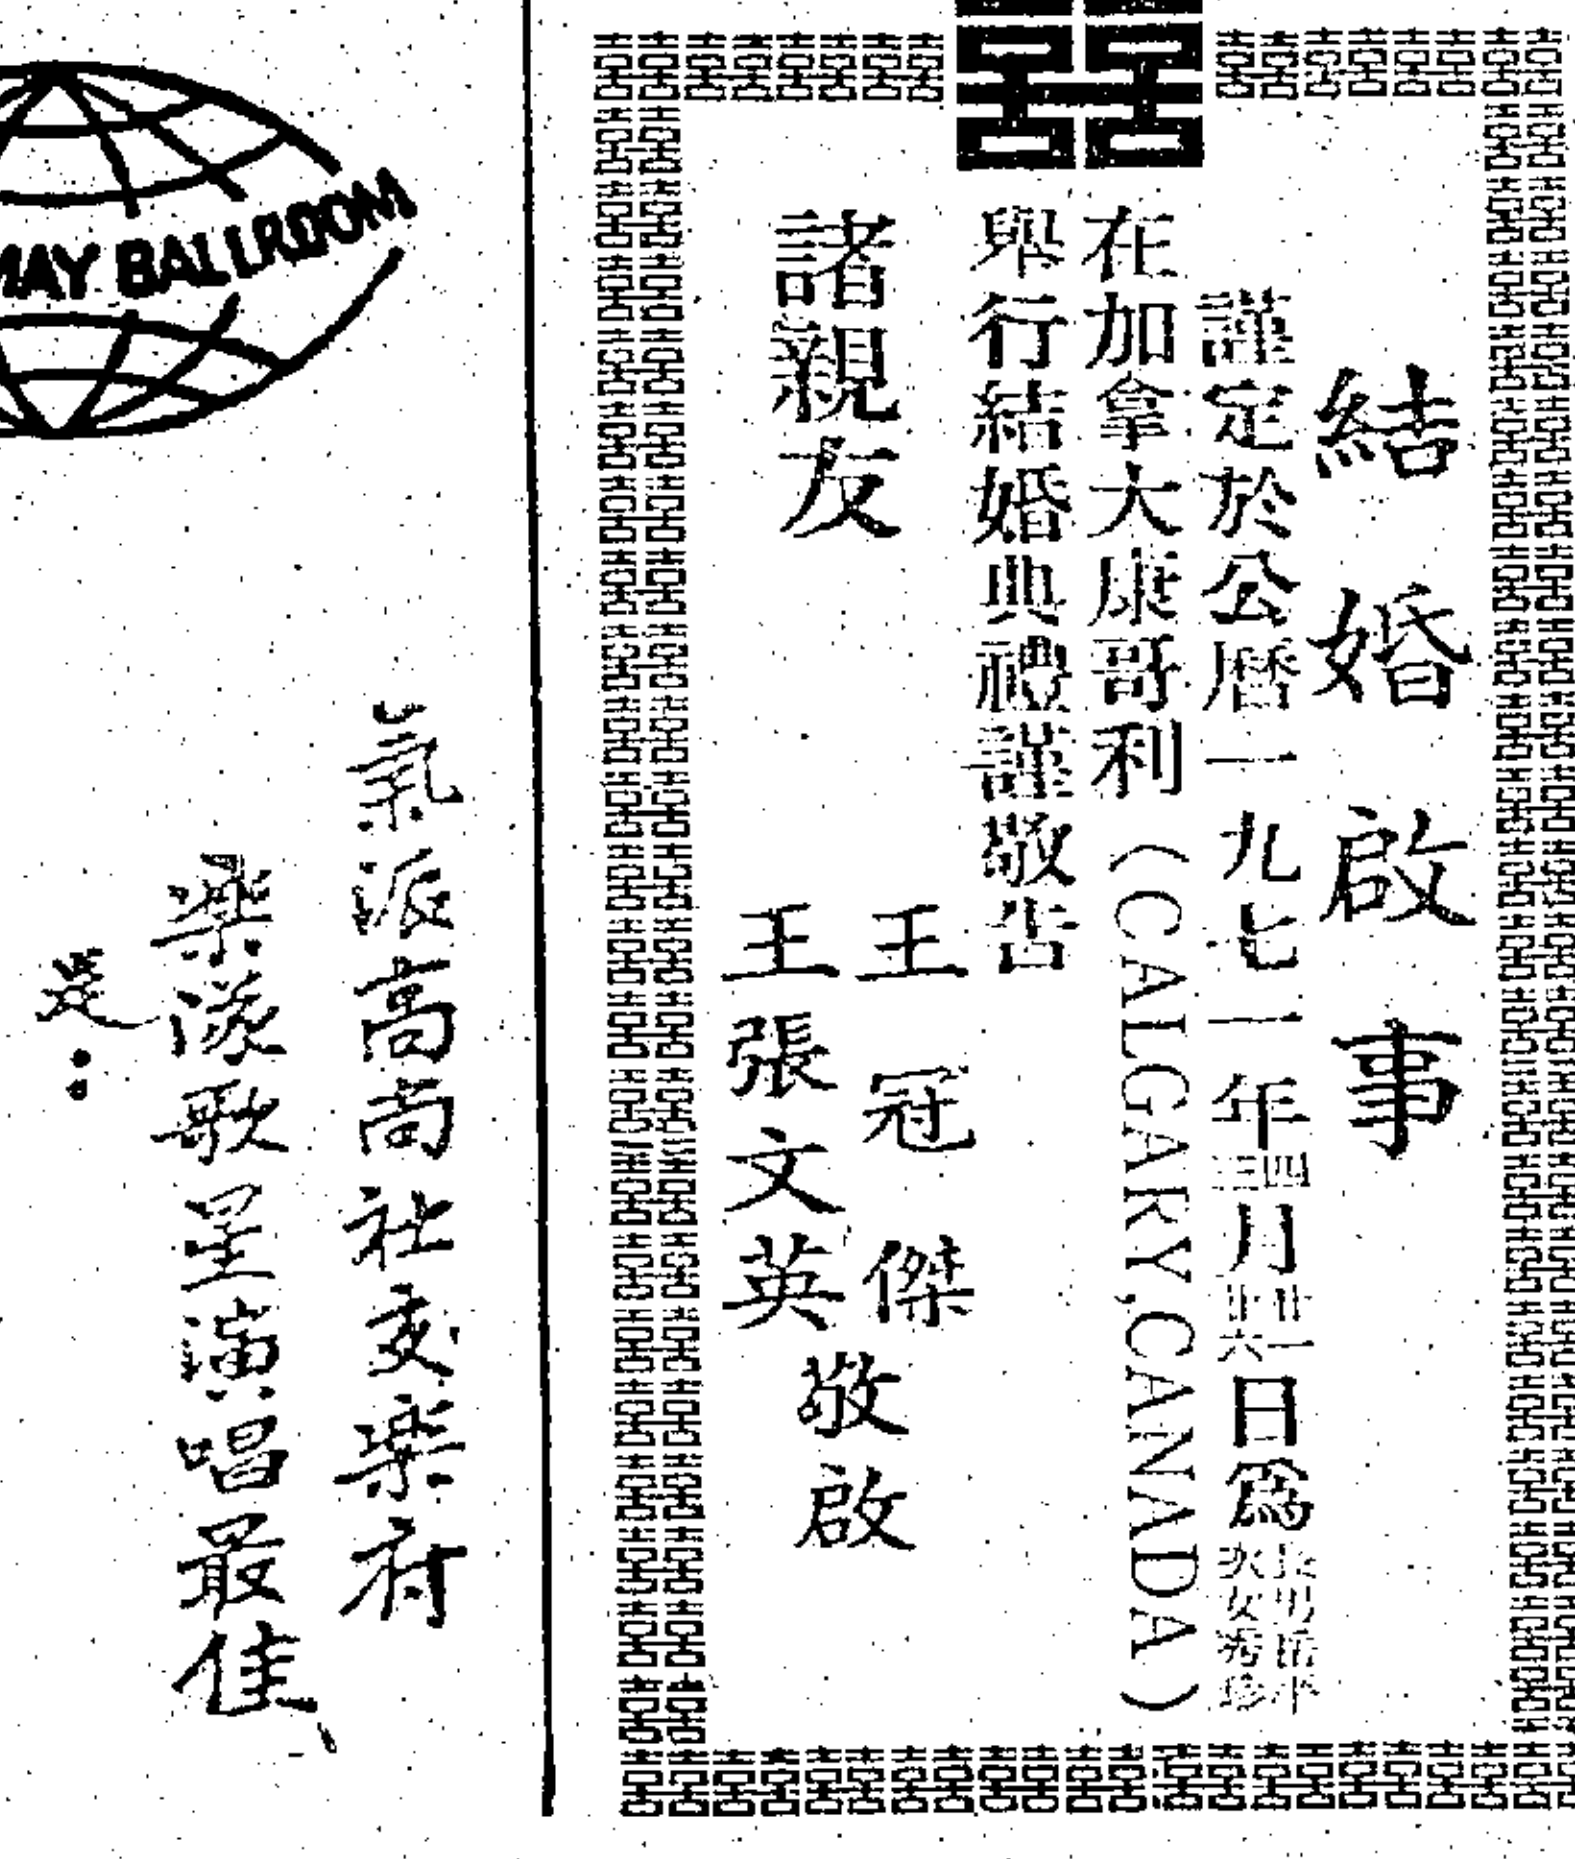 囍
結婚啟事
謹定於公曆一九七一年四月廿一日爲長男岳平
三月廿六 次女秀珍
在加拿大康哥利（CALGARY,CANADA）
舉行結婚典禮謹敬告
諸親友
王冠傑
王張文英
敬啟
MAY BALLROOM
氣派高尚社交楽府
楽隊歌星演唱最佳、
是：